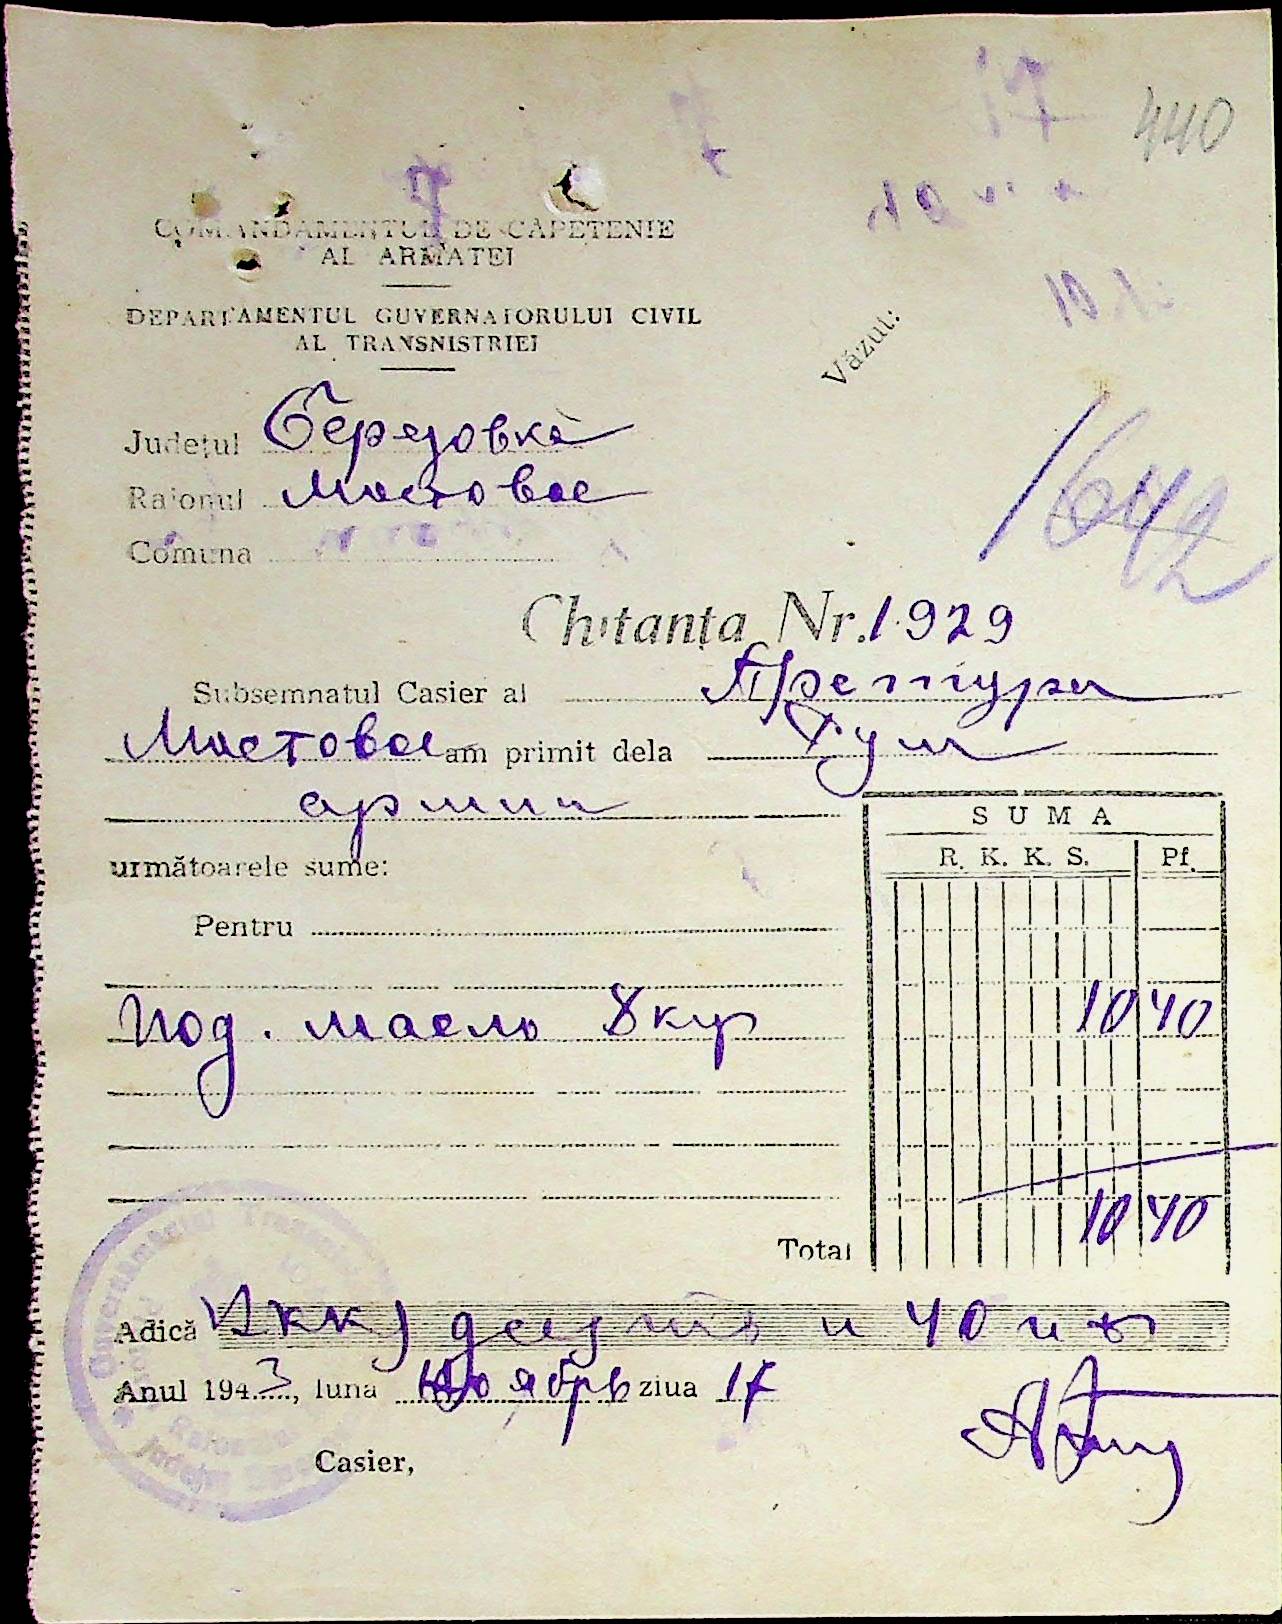 440
COMANDAMENTUL DE CAPETENIE
AL ARMATEI
DEPARTAMENTUL GUVERNATORULUI CIVIL
AL TRANSNISTRIEI
Văzut:
Județul Березовка
Raionul Мостовое
Comuna
1642
Chitanța Nr. 1929
Subsemnatul Casier al Претура
Мостовое am primit dela
армии
următoarele sume:
SUMA
R. K. K. S. Pf.
Pentru
Под. масло 8 кур 10 40
Total 10 40
Adică десять и 40
Anul 1943, luna Ноябрь ziua 17
Casier,
Guvernământul
Raionului
Județul